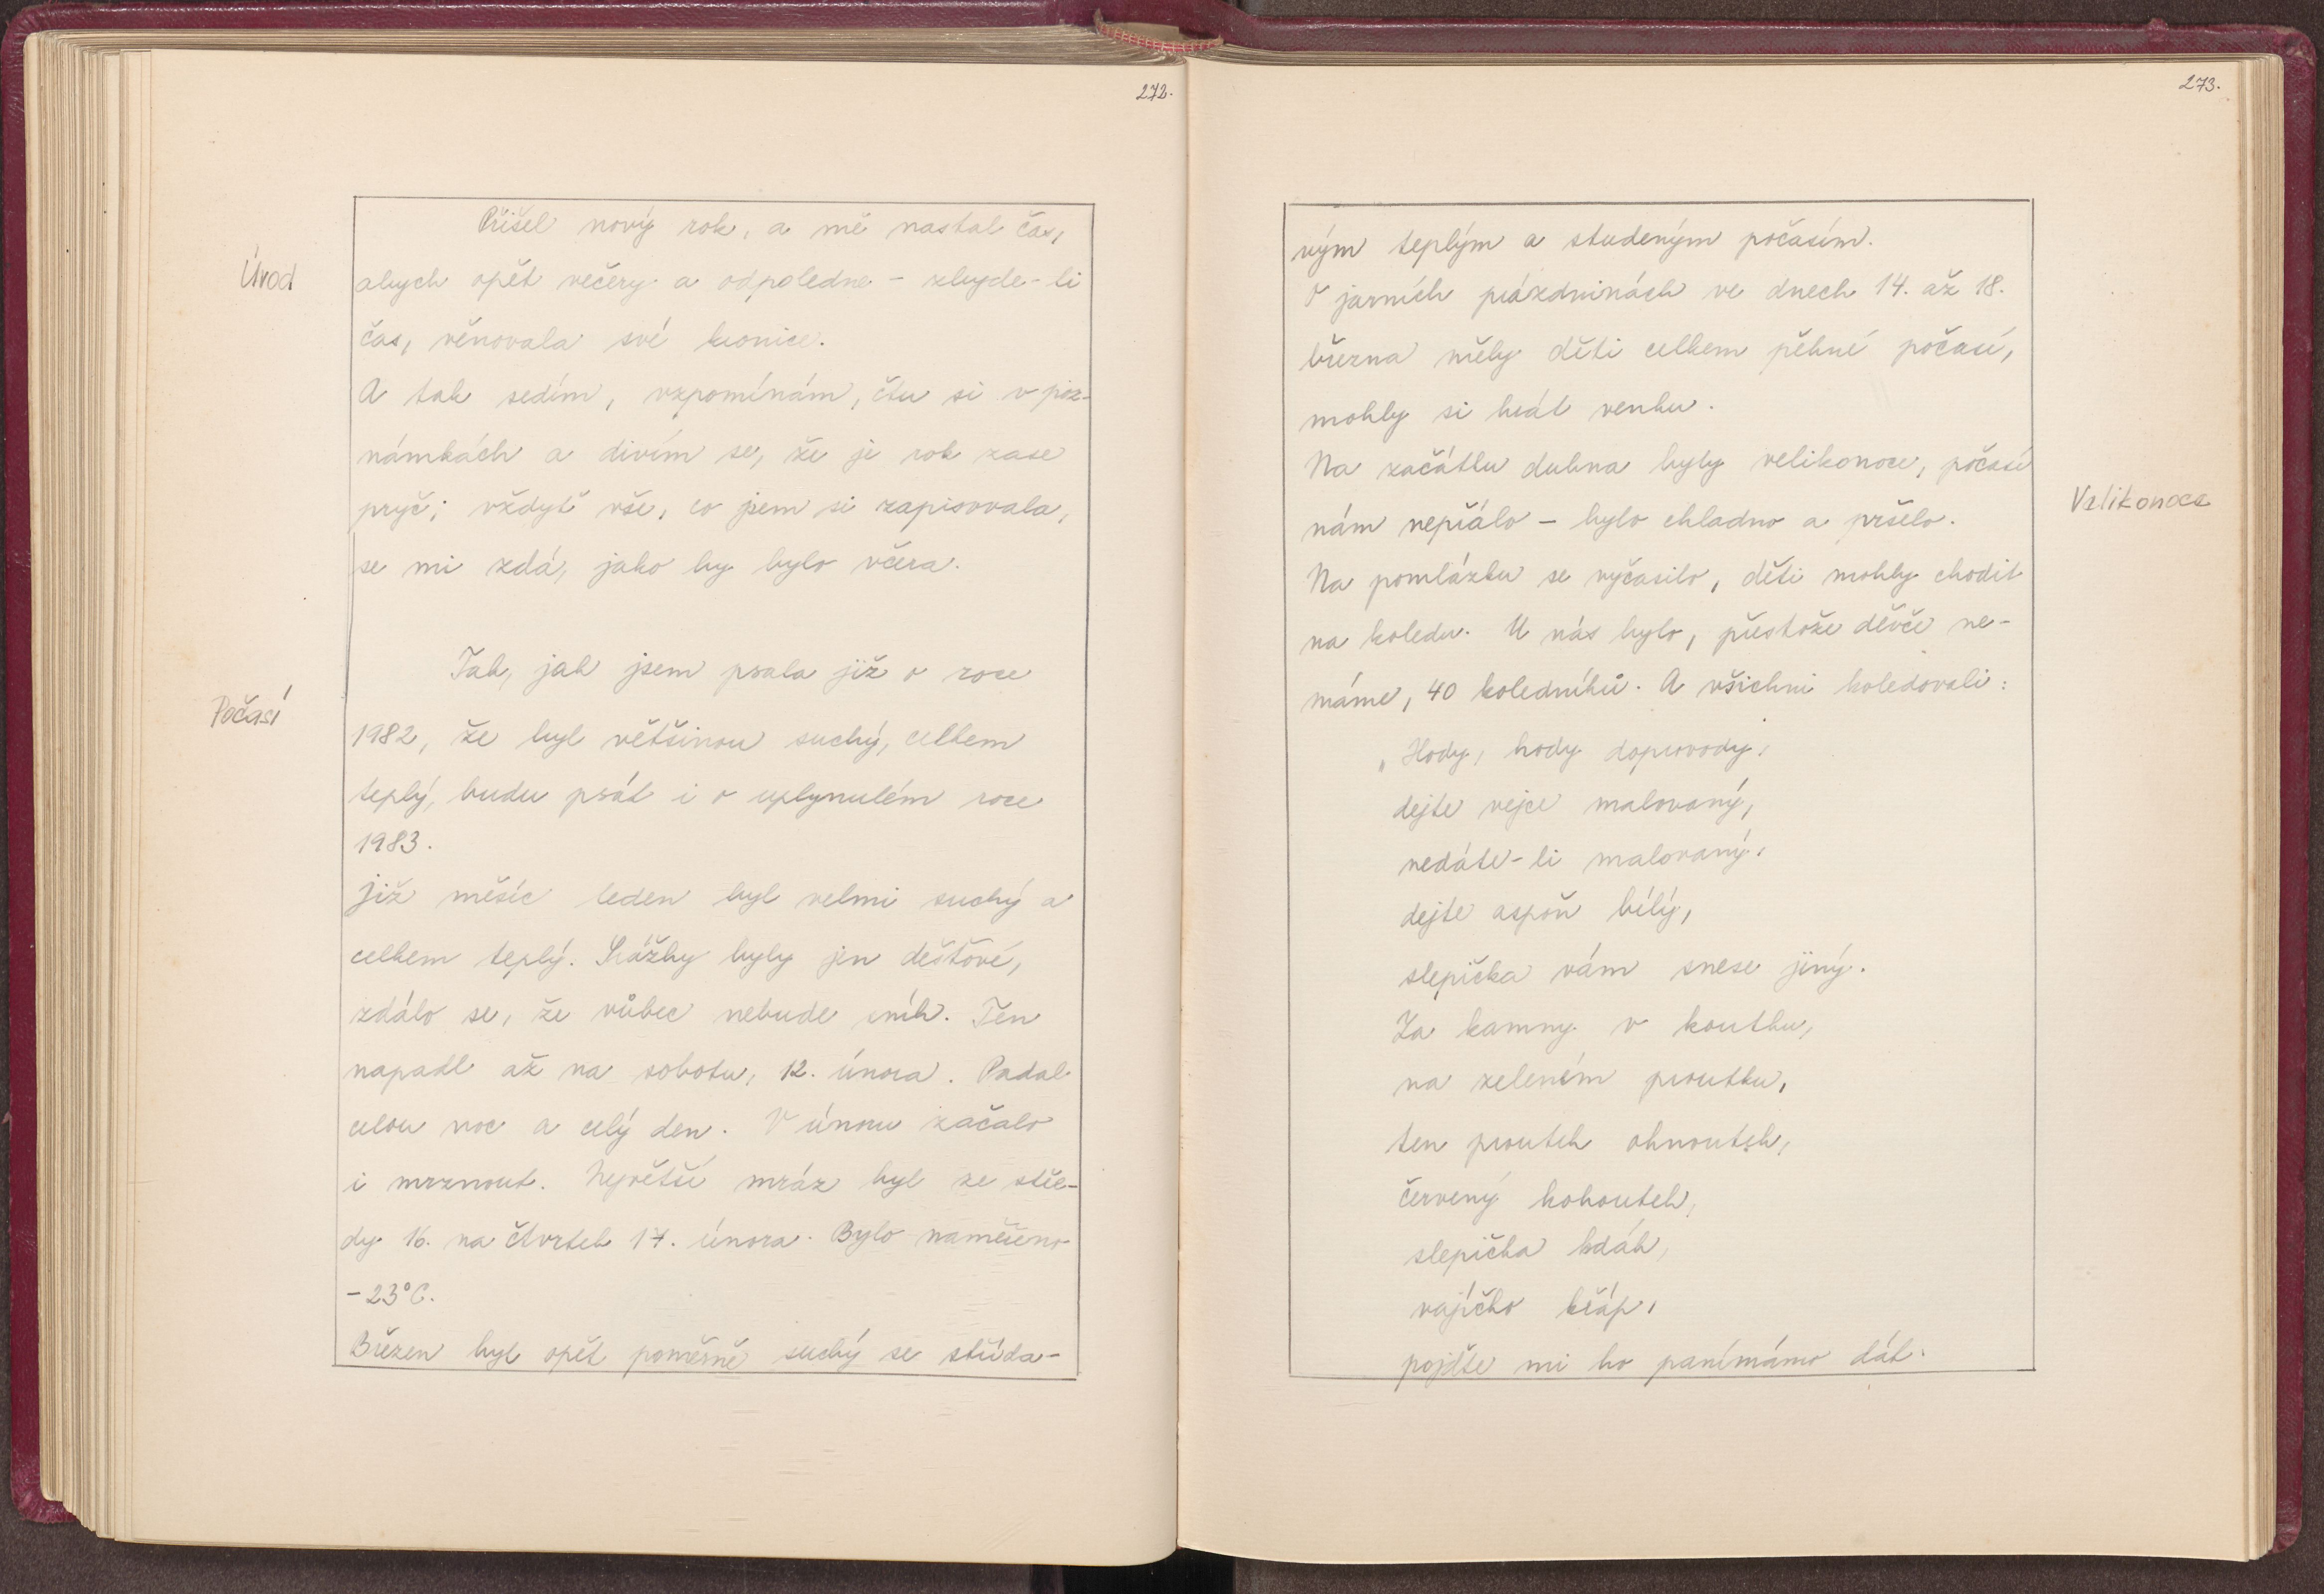 272.
Úvod
Přišel nový rok, a mě nastal čas,
abych opět večery a odpoledne - zbyde-li
čas, věnovala své kronice.
A tak sedím, vzpomínám, čtu si v poz-
námkách a divím se, že je rok zase
pryč; vždyť vše, co jsem si zapisovala,
se mi zdá, jako by bylo včera.
Počasí
Tak, jak jsem psala již o roce
1982, že byl většinou suchý, celkem
teplý, budu psát i o uplynulém roce
1983.
Již měsíc leden byl velmi suchý a
celkem teplý. Srážky byly jen dešťové,
zdálo se, že vůbec nebude sníh. Ten
napadl až na sobotu, 12. února. Padal
celou noc a celý den. V únoru začalo
i mrznout. Největší mráz byl ze stře-
dy 16. na čtvrtek 17. února. Bylo naměřeno
-23°C.
Březen byl opět poměrně suchý se střída-
273.
vým teplým a studeným počasím.
O jarních prázdninách ve dnech 14. až 18.
března měly děti celkem pěkné počasí,
mohly si hrát venku.
Velikonoce
Na začátku dubna byly velikonoce, počasí
nám nepřálo - bylo chladno a pršelo.
Na pomlázku se vyčasilo, děti mohly chodit
na koledu. U nás bylo, přestože děvče ne-
máme, 40 koledníků. A všichni koledovali:
„Hody, hody doprovody,
dejte vejce malovaný,
nedáte-li malovaný,
dejte aspoň bílý,
slepička vám snese jiný.
Za kamny v koutku,
na zeleném proutku,
ten proutek ohnoutek,
červený kohoutek,
slepička kdák,
vajíčko křáp,
pojďte mi ho panímámo dát.